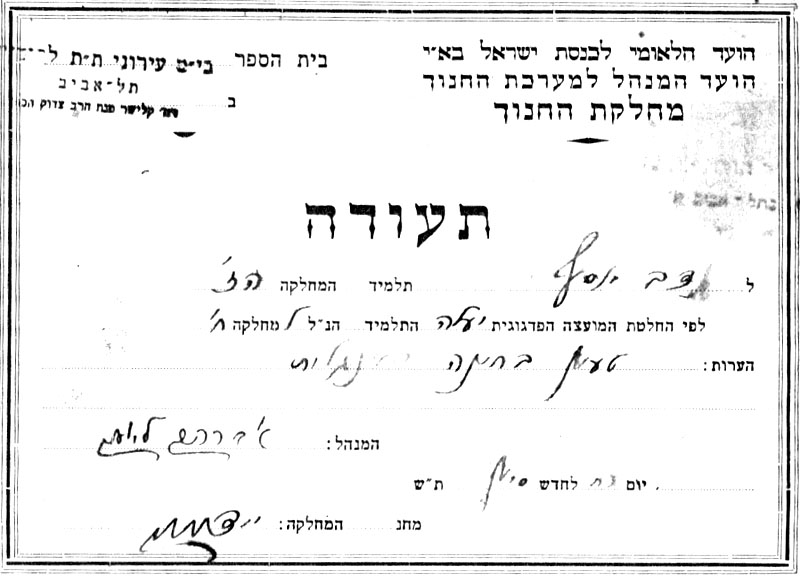 הועד הלאומי לכנסת ישראל בא״י
הועד המנהל למערכת החנוך
מחלקת החנוך
בית הספר בי״ס עירוני ת״ת
תל־אביב
ב
תעודה
ל דב יוסף תלמיד המחלקה הז׳
לפי החלטת המועצה הפדגוגית יעלה התלמיד הנ״ל ל מחלקה ח׳
הערות: טעון בחינה באנגלית
המנהל:
יום לחדש סיון ת״ש
מחנ המחלקה: